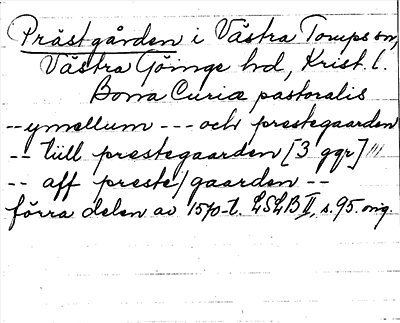 Prästgården i Västra Torups sn,
Västra Göinge hd, Krist. l.
Bona Curiæ pastoralis
-- ymellum --- och prestegaarden
-- tüll prestegaarden [3 ggr] !!!
-- aff preste/gaarden --
förra delen av 1570-t. LSLB II, s. 95. orig.